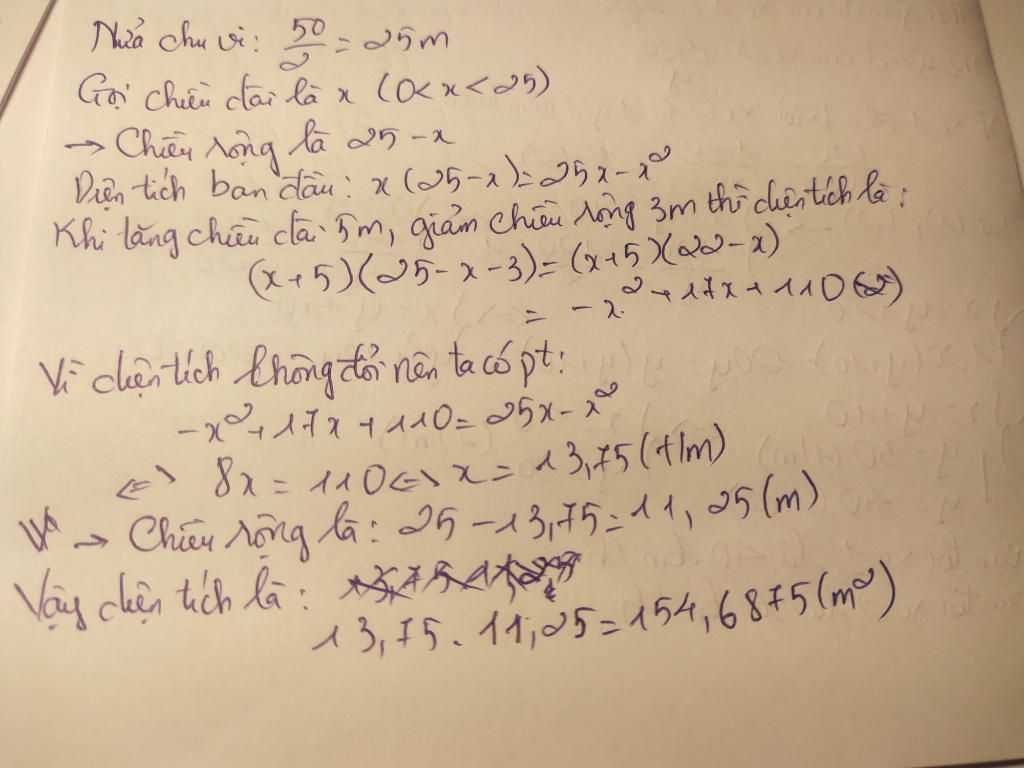 Nửa chu vi: 50/2 = 25m
Gọi chiều dài là x (0<x<25)
→ Chiều rộng là 25-x
Diện tích ban đầu: x(25-x)=25x-x²
Khi tăng chiều dài 5m, giảm chiều rộng 3m thì diện tích là:
(x+5)(25-x-3)=(x+5)(22-x)
= -x²+17x+110
Vì diện tích không đổi nên ta có pt:
-x²+17x+110=25x-x²
<=> 8x=110<=> x=13,75(t/m)
→ Chiều rộng là: 25-13,75=11,25(m)
Vậy diện tích là:
13,75.11,25=154,6875(m²)